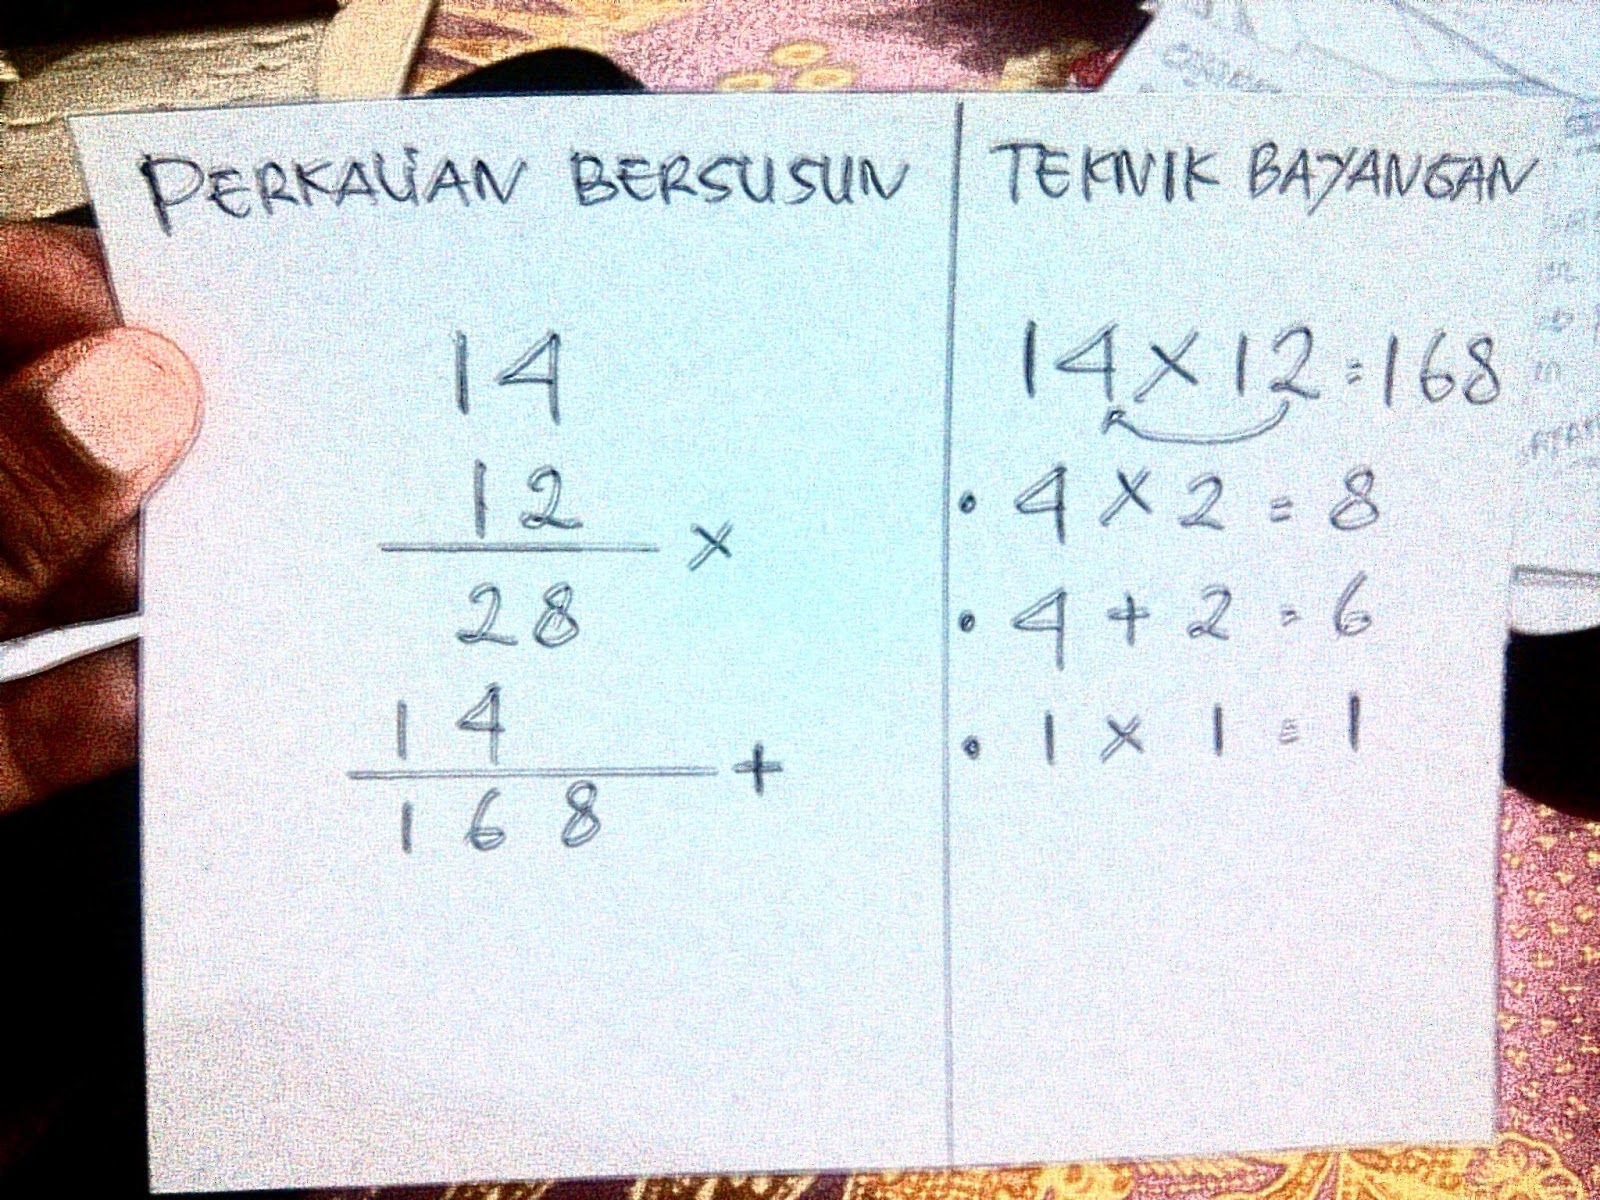 PERKALIAN BERSUSUN
14
12
×
28
14
+
168
TEKNIK BAYANGAN
14 × 12 = 168
• 4 × 2 = 8
• 4 + 2 = 6
• 1 × 1 = 1